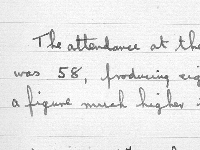 The attendance at the
was 58, producing eig
a figure much higher i